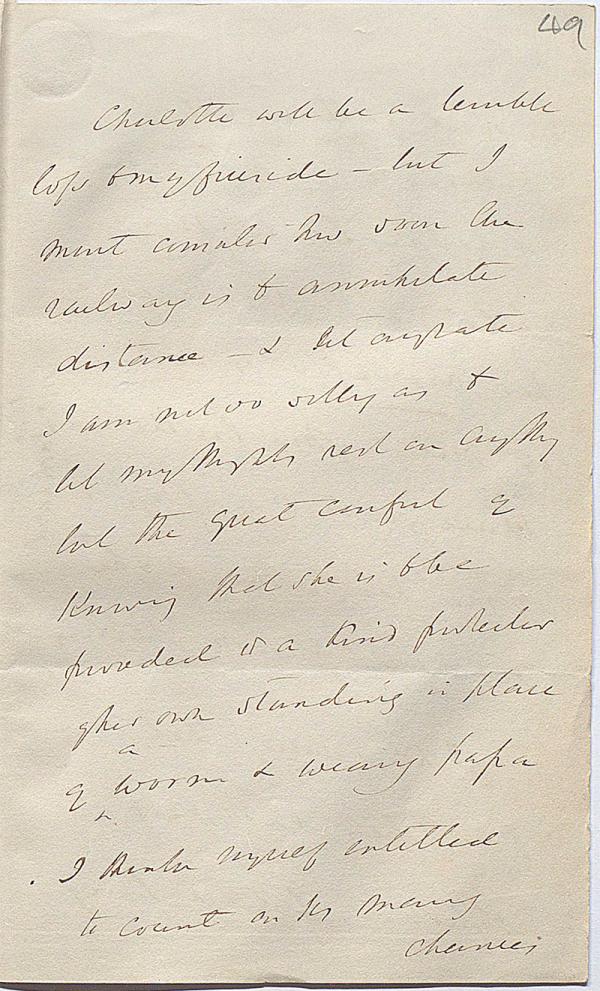 49
Charlotte will be a terrible
loss to my fireside – but I
must consider how soon the
railway is to annihilate
distance – & at any rate
I am not so silly as to
let my thoughts rest on anything
but the great comfort of
knowing that she is to be
provided w a kind protector
of her own standing in place
of a worn & weary papa
I think myself entitled
to count on his many
chances